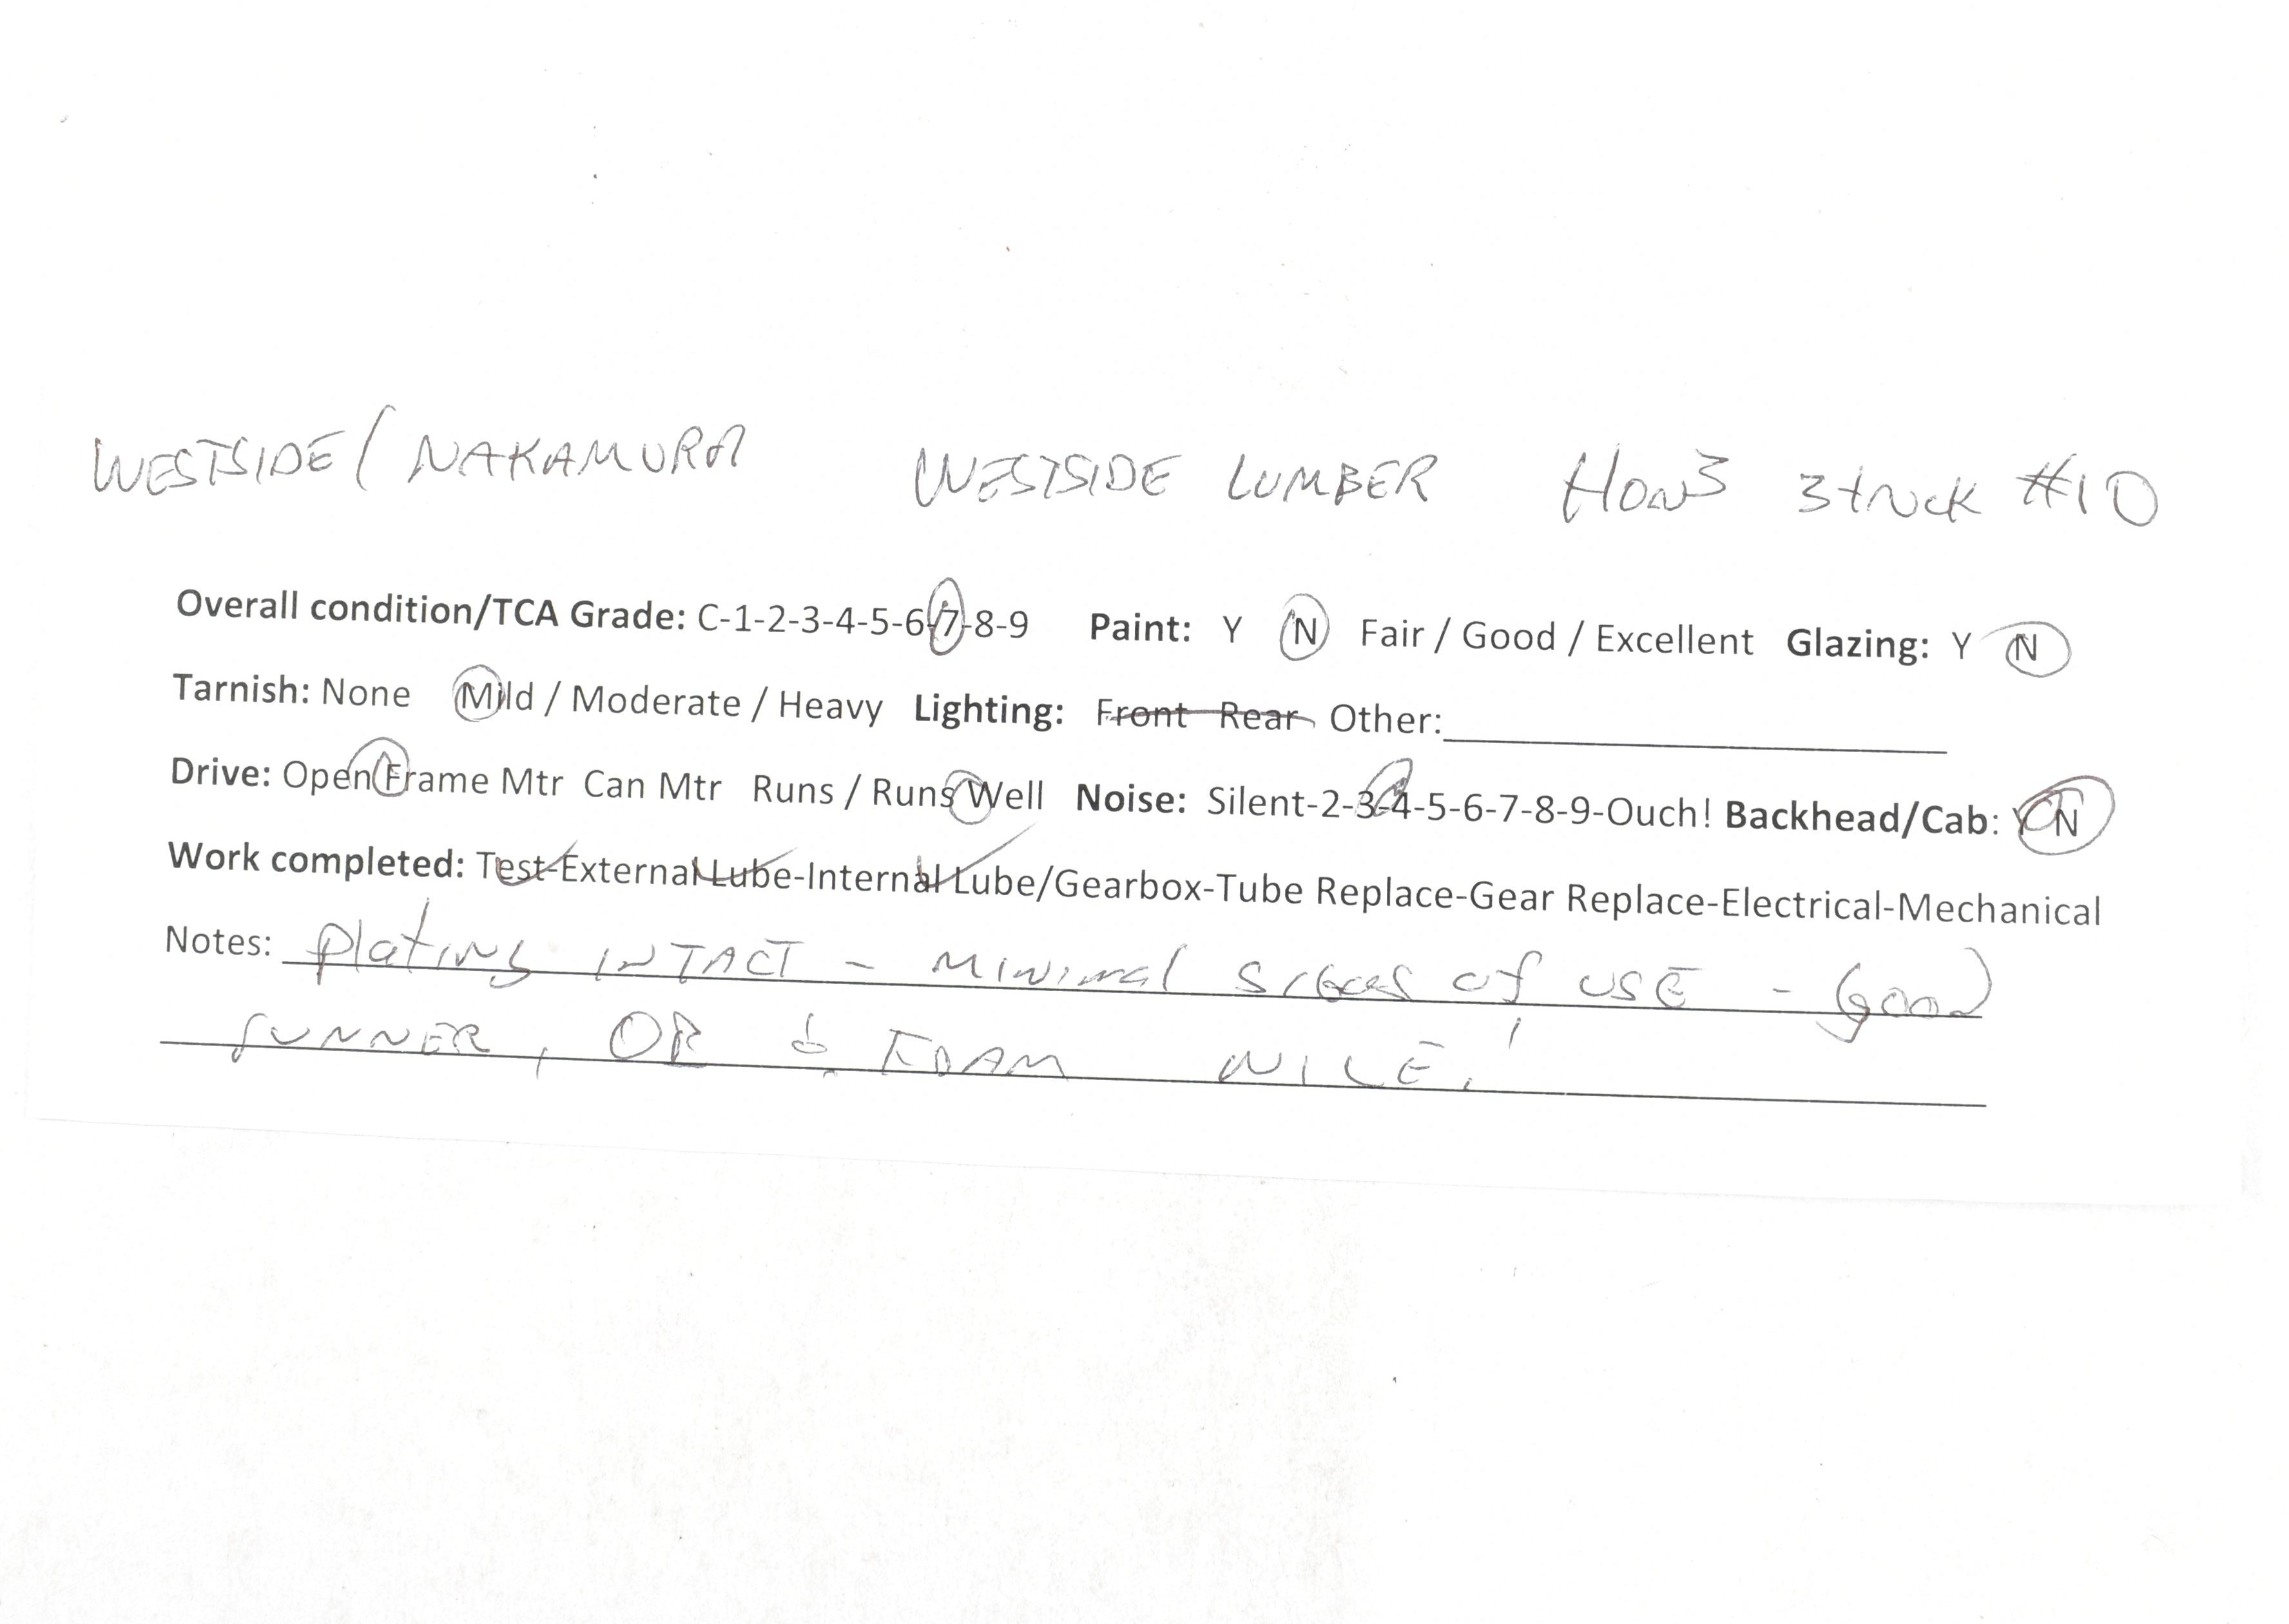 WESTSIDE / NAKAMURA WESTSIDE LUMBER HOn3 3truck #10
Overall condition/TCA Grade: C-1-2-3-4-5-6-7-8-9 Paint: Y N Fair / Good / Excellent Glazing: Y N
Tarnish: None Mild / Moderate / Heavy Lighting: Front Rear Other:
Drive: Open Frame Mtr Can Mtr Runs / Runs Well Noise: Silent-2-3-4-5-6-7-8-9-Ouch! Backhead/Cab: Y N
Work completed: Test-External Lube-Internal Lube/Gearbox-Tube Replace-Gear Replace-Electrical-Mechanical
Notes: Plating INTACT - Minimal of USE - Good
runner, OB & FOAM NICE!